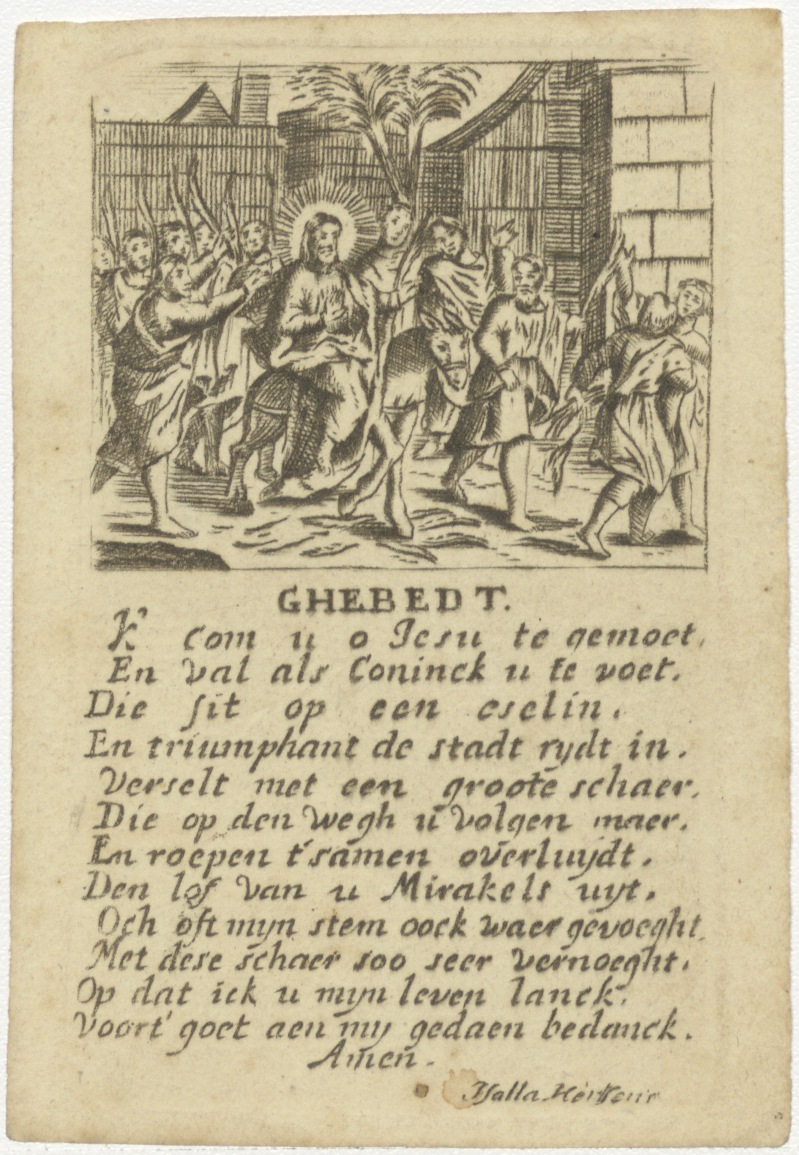 GHEBEDT.
K' com u o Jesu te gemoet,
En val als Coninck u te voet.
Die sit op een eselin.
En triumphant de stadt rydt in.
Verselt met een groote schaer.
Die op den wegh u volgen maer.
En roepen t'samen overluydt.
Den lof van u Mirakels uyt.
Och oft myn stem oock waer gevoeght
Met dese schaer soo seer vernoeght.
Op dat ick u myn leven lanck.
Voort' goet aen my gedaen bedanck.
Amen.